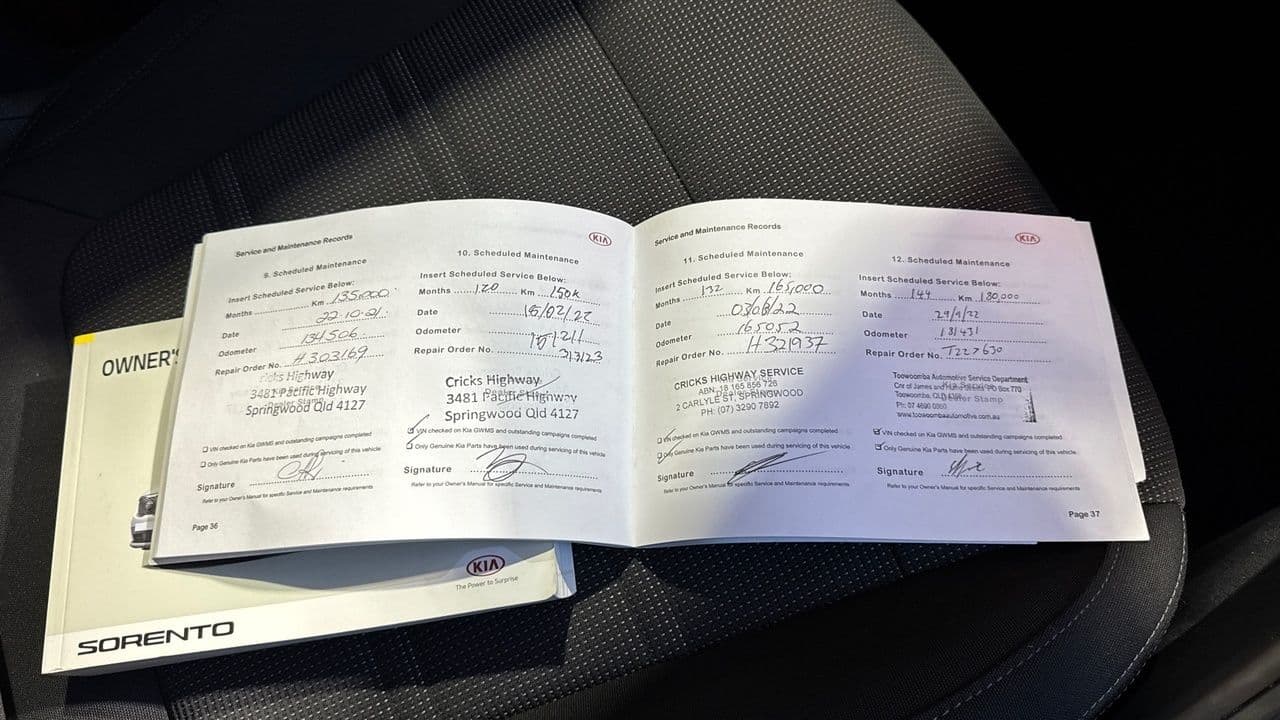 Service and Maintenance Records
KIA
9. Scheduled Maintenance
Insert Scheduled Service Below:
Months Km 135,000
Date 22.10.21
Odometer 134506
Repair Order No. 303169
Cricks Highway
3481 Pacific Highway
Springwood Qld 4127
VIN checked on Kia GWMS and outstanding campaigns completed
Only Genuine Kia Parts have been used during servicing of this vehicle
Signature
Refer to your Owner's Manual for specific Service and Maintenance requirements
Page 36
10. Scheduled Maintenance
Insert Scheduled Service Below:
Months 120 Km 150K
Date 15/02/22
Odometer 151211
Repair Order No. 313123
Cricks Highway
3481 Pacific Highway
Springwood Qld 4127
VIN checked on Kia GWMS and outstanding campaigns completed
Only Genuine Kia Parts have been used during servicing of this vehicle
Signature
Refer to your Owner's Manual for specific Service and Maintenance requirements
Service and Maintenance Records
KIA
11. Scheduled Maintenance
Insert Scheduled Service Below:
Months 132 Km 165,000
Date 03/06/22
Odometer 165052
Repair Order No. H321937
CRICKS HIGHWAY SERVICE
ABN 18 165 856 726
2 CARLYLE ST, SPRINGWOOD
PH: (07) 3290 7892
VIN checked on Kia GWMS and outstanding campaigns completed
Only Genuine Kia Parts have been used during servicing of this vehicle
Signature
Refer to your Owner's Manual for specific Service and Maintenance requirements
12. Scheduled Maintenance
Insert Scheduled Service Below:
Months 144 Km 180,000
Date 29/9/22
Odometer 181431
Repair Order No. T227630
Toowoomba Automotive Service Department
Cnr of James and PO Box 770
Toowoomba, QLD Dealer Stamp
Ph: 07 4690
www.toowoombaautomotive.com.au
VIN checked on Kia GWMS and outstanding campaigns completed
Only Genuine Kia Parts have been used during servicing of this vehicle
Signature
Refer to your Owner's Manual for specific Service and Maintenance requirements
Page 37
OWNER'S
KIA
The Power to Surprise
SORENTO